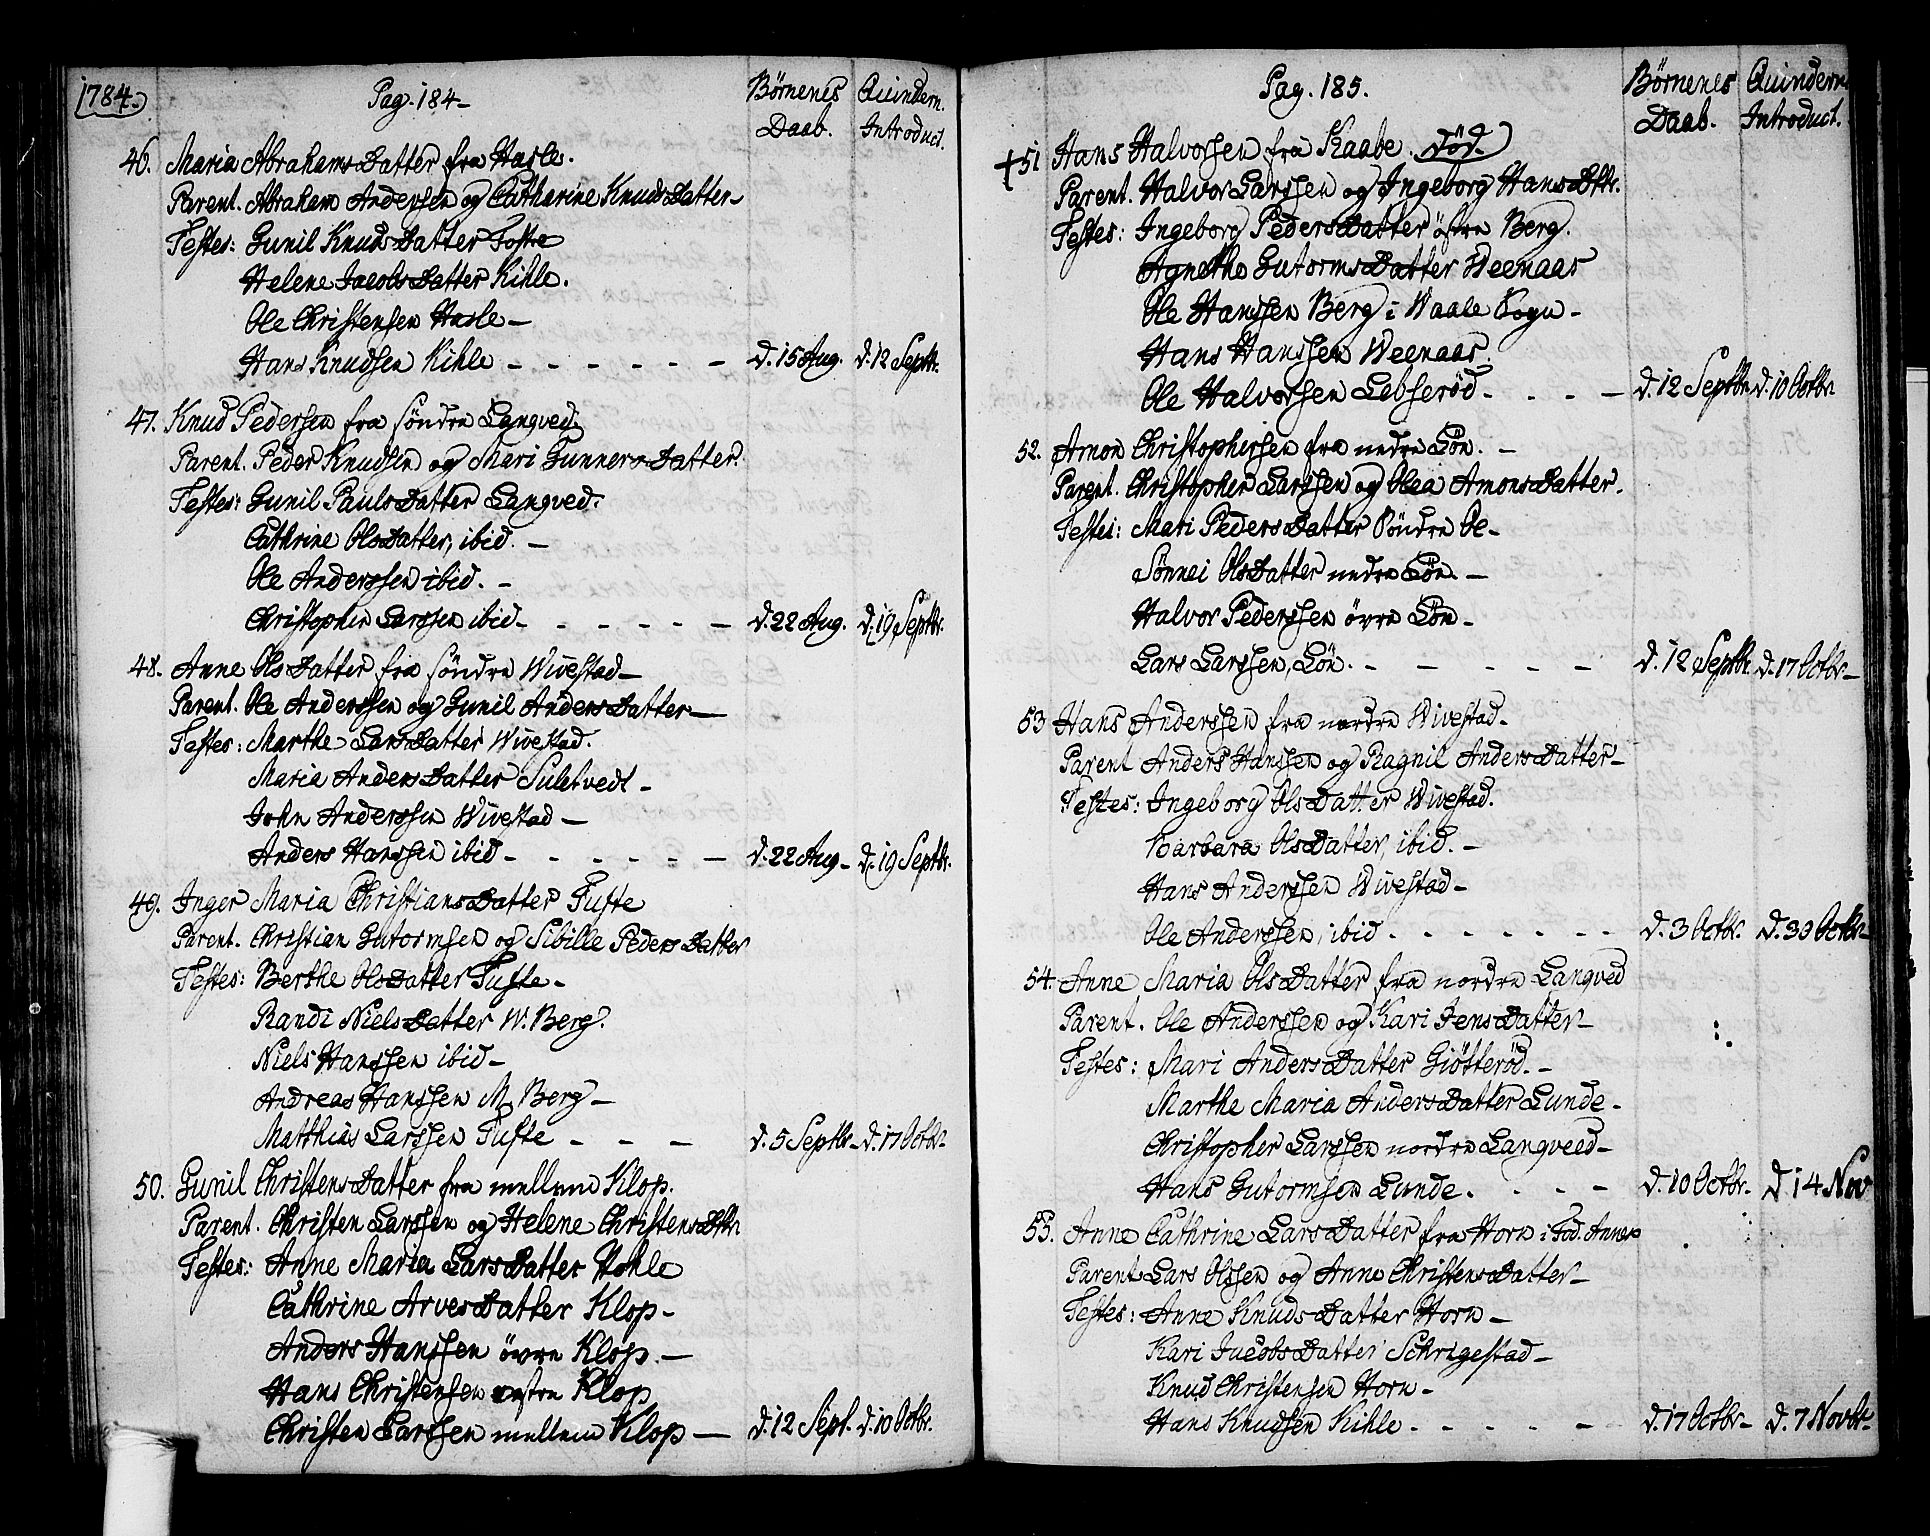 1784.
Pag. 184-
Börnenes Daab.
Quindern. Introduct.
46. Maria AbrahamsDatter fra Hasle.
Parent. Abraham Anderssen og Catharine KnudsDatter-
Testes: Gunil KnudsDatter Fostre
Helene JacobsDatter Kihle.
Ole Christensen Hasle-
Hans Knudsen Kihle - - - - - - d. 15 Aug. d. 12 Septbr.
47. Knud Pederssen fra söndre Langved.
Parent. Peder Knudsen og Mari GunnersDatter.
Testes: Gunil PaulsDatter Langved.
Cathrine OlsDatter, ibid. -
Ole Anderssen ibid. -
Christopher Larssen ibid- - - - - - d. 22 Aug. d. 19 Septbr.
48. Anne OlsDatter fra söndre Wivestad-
Parent. Ole Anderssen og Gunil AndersDatter-
Testes: Marthe LarsDatter Wivestad.
Maria AndersDatter Suletvedt-
John Anderssen Wivestad-
Anders Hanssen ibid- - - - - - d. 22 Aug- d. 19 Septbr.
49. Inger Maria ChristiansDatter Tufte
Parent. Christian Gutormsen og Sibille PedersDatter
Testes: Berthe OlsDatter Tufte-
Randi NielsDatter W. Berg.
Niels Hanssen ibid-
Andreas Hanssen M. Berg-
Matthias Larssen Tufte - - - d. 5 Septbr- d. 17 Octbr-
50. Gunil ChristensDatter fra mellem Klop.
Parent. Christen Larssen og Helene ChristensDttr.
Testes: Anne Maria LarsDatter Hohle
Cathrine ArvesDatter Klop-
Anders Hanssen övre Klop.-
Hans Christensen vestre Klop
Christen Larssen mellem Klop - d. 12 Sept. d. 10 Octbr.
Pag. 185.
Börnenes Daab.
Quindern. Introduct.
+51 Hans Halvorssen fra Kaabe. död.
Parent. Halvor Larssen og Ingeborg HansDttr.
Testes: Ingeborg PedersDatter östre Berg.
Agnethe GutormsDatter Weenaas
Ole Hanssen Berg i Waale Sogn-
Hans Hanssen Weenaas.
Ole Halvorsen Lebseröd- - - - d. 12 Septbr. d. 10 Octbr.
52. Amon Christophersen fra nedre Lön. -
Parent. Christopher Larssen og Olea AmonsDatter.
Testes: Mari PedersDatter Söndre Oe-
Sönnei OlsDatter nedre Lön.-
Halvor Pederssen övre Lön-
Lars Larssen, Lön. - - - - - d. 12 Septbr. d. 17 Octbr-
53 Hans Anderssen fra nordre Wivestad-
Parent Anders Hanssen og Ragnil AndersDatter-
Testes: Ingeborg OlsDatter Wivestad.
Barbara OlsDatter, ibid. -
Hans Anderssen Wivestad-
Ole Anderssen, ibid - - - - - - - d. 3 Octbr. d. 30 Octbr-
54. Anne Maria OlsDatter fra nordre Langved
Parent. Ole Anderssen og Kari JensDatter-
Testes: Mari AndersDatter Giötteröd.-
Marthe Maria AndersDatter Lunde-
Christopher Larssen nordre Langveed-
Hans Gutormsen Lunde. - - - d. 10 Octbr. d. 14 Nov
55. Anne Cathrine LarsDatter fra Horn i Fod. Annex
Parent Lars Olssen og Anne ChristensDatter-
Testes: Anne KnudsDatter Horn-
Kari JacobsDatter Schrigestad-
Knud Christensen Horn-
Hans Knudsen Kihle - - - - - d. 17 Octbr- d. 7 Novbr-